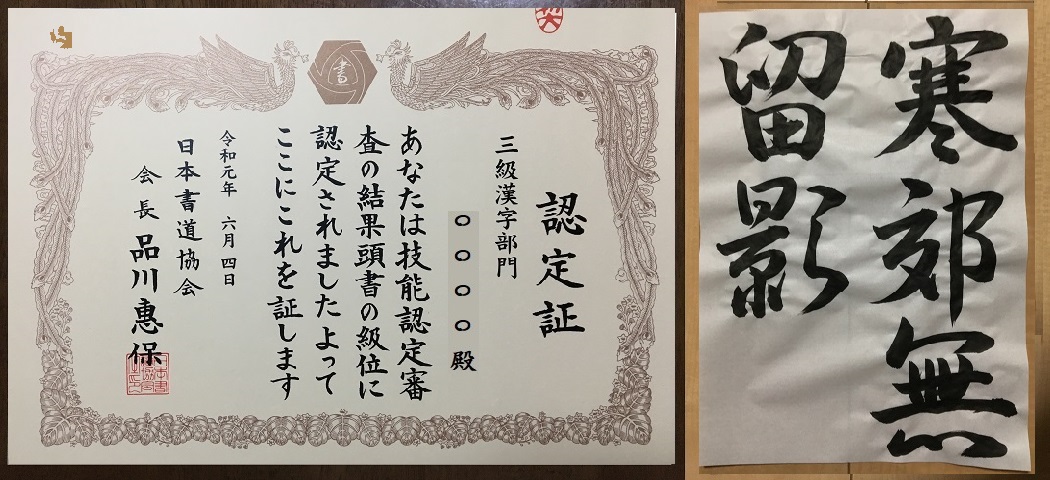 書
認定証
三級漢字部門
○○○○殿
あなたは技能認定審
査の結果頭書の級位に
認定されましたよって
ここにこれを証します
令和元年 六月四日
日本書道協会
会長 品川惠保
寒郊無
留影